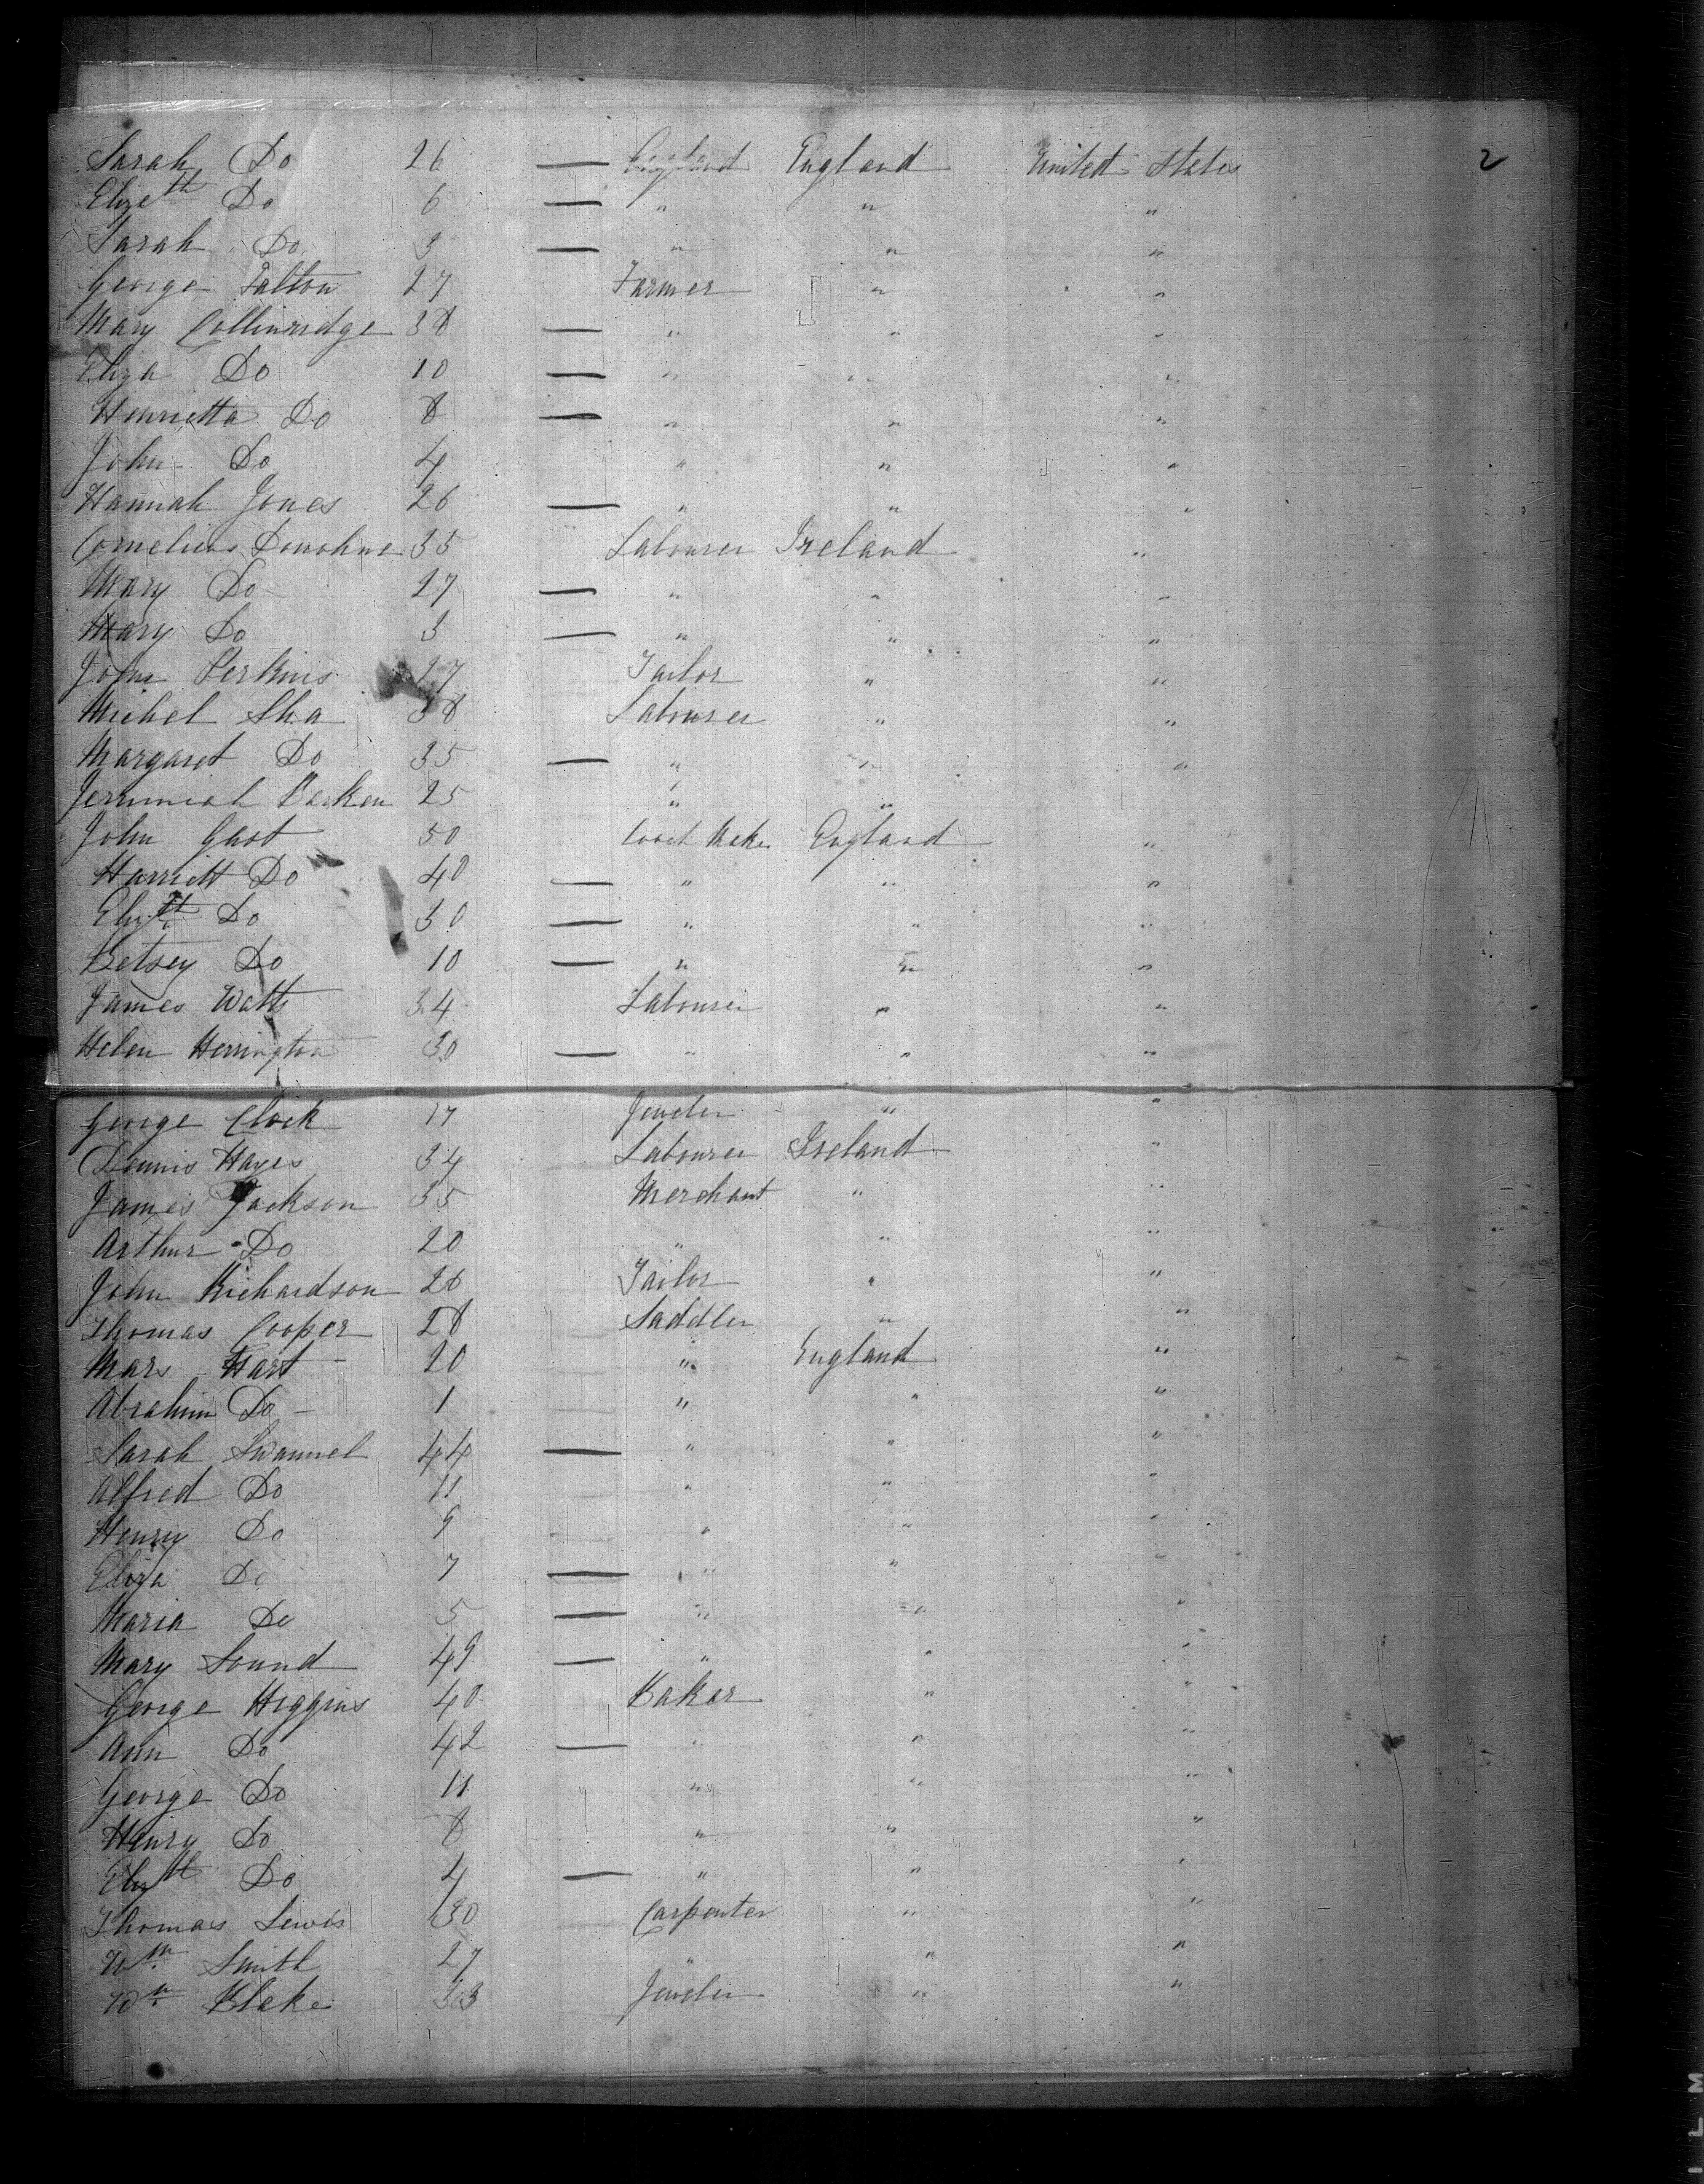 2
Sarah Do 26 — England England United States
Elizeth Do 6 — " " "
Sarah Do 3 — " " "
George Falton 27 Farmer " "
Mary Collinridge 38 — " " "
Eliza Do 10 — " " "
Henrietta Do 8 — " " "
John Do 4 " " "
Hannah Jones 26 — " " "
Cornelius Donohue 35 Labourer Ireland "
Mary Do 27 — " " "
Mary Do 3 — " " "
John Perkins 27 Tailor " "
Michel Sha 38 Labourer " "
Margaret Do 35 — " " "
Jerimiah Barken 25 " "
John Gast 50 Maker England "
Harriett Do 40 — " " "
Elizth Do 30 — " " "
Betsey Do 10 — " " "
James Watts 34 Labourer " "
Helen Herrington 30 — " " "
George Clock 17 Jeweler " "
Dennis Hayes 34 Labourer Ireland "
James Jackson 35 Merchant " "
Arthur Do 20 " " "
John Richardson 26 Tailor " "
Thomas Cooper 28 Saddler " "
Mars Hart 20 " England "
Abrahim Do 1 " " "
Sarah Swannel 44 — " " "
Alfred Do 11 " " "
Henry Do 9 " " "
Eliza Do 7 — " " "
Maria Do 5 — " " "
Mary Sound 49 — " " "
George Higgins 40 Baker " "
Ann Do 42 — " " "
George Do 11 " " "
Henry Do 8 " " "
Elizth Do 4 — " " "
Thomas Lewis 30 Carpenter " "
Wm Smith 27 " " "
Wm Blake 33 Jeweler " "